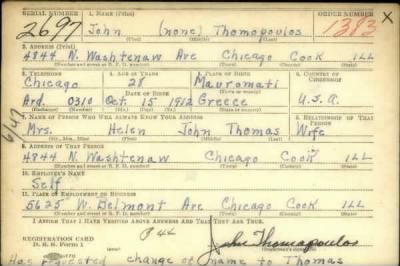 SERIAL NUMBER 1. NAME (Print) ORDER NUMBER
2697 John (none) Thomopoulos 1383 X
(First) (Middle) (Last)
2. ADDRESS (Print)
4844 N. Washtenaw Ave Chicago Cook ILL
(Number and street or R. F. D. number) (Town) (County) (State)
3. TELEPHONE 4. AGE IN YEARS 5. PLACE OF BIRTH 6. COUNTRY OF CITIZENSHIP
Chicago 28 Mavromati
DATE OF BIRTH
Ard. 0310 Oct. 15 1912 Greece U.S.A.
(Exchange) (Number) (Mo.) (Day) (Yr.) (Town or county) (State or country)
7. NAME OF PERSON WHO WILL ALWAYS KNOW YOUR ADDRESS 8. RELATIONSHIP OF THAT PERSON
Mrs. Helen John Thomas Wife
(Mr., Mrs., Miss) (First) (Middle) (Last)
9. ADDRESS OF THAT PERSON
4844 N. Washtenaw Chicago Cook ILL
(Number and street or R. F. D. number) (Town) (County) (State)
10. EMPLOYER'S NAME
Self
11. PLACE OF EMPLOYMENT OR BUSINESS
5625 W. Belmont Ave Chicago Cook ILL
(Number and street or R. F. D. number) (Town) (County) (State)
I AFFIRM THAT I HAVE VERIFIED ABOVE ANSWERS AND THAT THEY ARE TRUE.
REGISTRATION CARD
D. S. S. Form 1
John Thomopoulos
Has requested change of name to Thomas